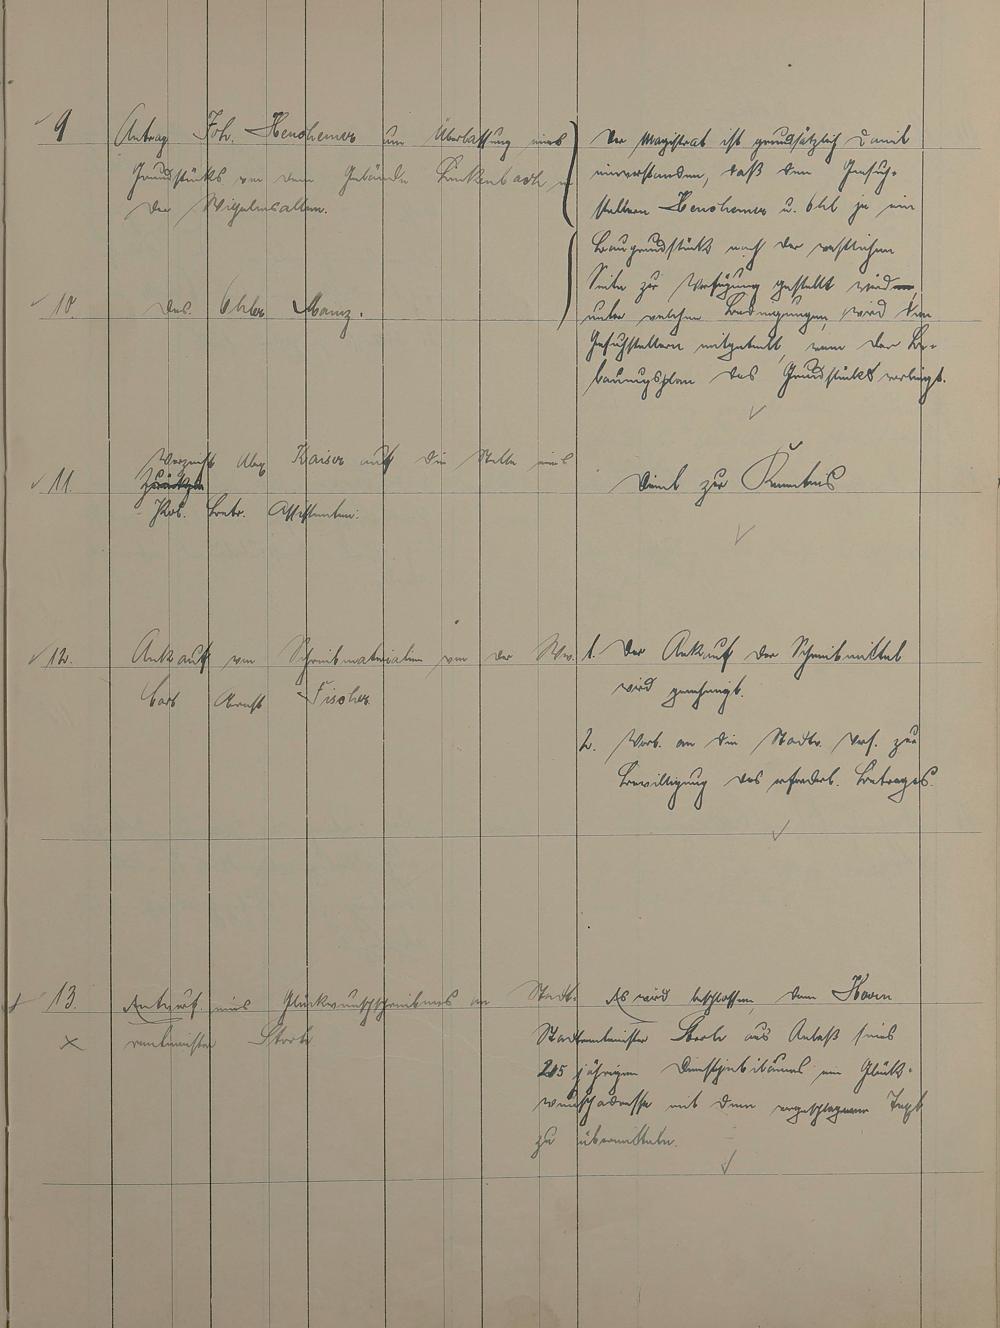 9 Antrag Joh. Henshemer um Überlassung eines
Grundstücks von dem Gelände Linkenbach in
der Wilhelmsallee.
Der Magistrat ist grundsätzlich damit
einverstanden, daß den Gesuch-
stellern Henshemer u. Ohl je ein
Baugrundstück nach der westlichen
Seite zur Verfügung gestellt wird
unter welchen Bedingungen, wird den
Gesuchstellern mitgeteilt, wenn der Be-
bauungsplan das Grundstücks vorliegt.
10. Des. Manz.
11 Verzicht Kaiser auf die Stelle eines
Assistenten.
Dient zur Kenntnis
12. Ankauf von Schreibmaterialien von der Ww.
Carl Ernst Fischer
1. Der Ankauf der Schreibmittel
wird genehmigt.
2. Vorl. an die Stadtv. Vers. zur
Bewilligung des erforderl. Betrages.
13. Entwurf eines Glückwunschschreibens an Stadt-
rentmeister Stork
Es wird beschlossen, dem Herrn
Stadtrentmeister Stork aus Anlaß seines
25 jährigen Dienstjubiläums ein Glück-
wunschadresse mit dem vorgeschlagenen Text
zu übermitteln.